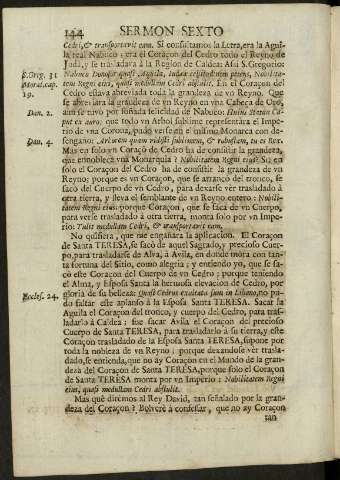 144 SERMON SEXTO
Cedri, & transportavit eam. Si consultamos la Letra, era la Agui-
la real Nabuco: era el Coraçon del Cedro todo el Reyno de
Juda, y se trasladava à la Region de Caldea: Assi S. Gregorio:
S. Greg. 31
Moral. cap.
19.
Nabuco Donosor quasi Aquila, Iudææ celsitudinem petens, Nobilita-
tem Regni eius, quasi medullam Cedri abstulit. En el Coraçon del
Cedro estava abreviada toda la grandeza de vn Reyno. Que
se abreviàra la grandeza de vn Reyno en vna Cabeça de Oro,
Dan. 2.
aun se tuvo por soñada felicidad de Nabuco: Huius Statuæ Ca-
put ex auro: que todo vn Arbol sublime representàra el Impe-
rio de vna Corona, pudo verse en el mismo Monarca con de-
Dan. 4.
sengaño: Arborem quem vidisti sublimem, & robustam, tu es Rex.
Mas en solo vn Coraçõ de Cedro ha de consistir la grandeza,
que ennoblece vna Monarquia? Nobilitatem Regni eius? Si en
solo el Coraçon del Cedro ha de consistir la grandeza de vn
Reyno; porque es vn Coraçon, que se arrancò del tronco, se
sacò del Cuerpo de vn Cedro, para dexarse vèr trasladado à
otra tierra, y lleva el semblante de vn Reyno entero: Nobili-
tatem Regni eius: porque Coraçon, que se saca de vn Cuerpo,
para verse trasladado à otra tierra, monta solo por vn Impe-
rio: Tulit medullam Cedri, & transportavit eam.
No quisiera, que me engañara la aplicacion. El Coraçon
de Santa TERESA, se sacò de aquel Sagrado, y precioso Cuer-
po, para trasladarse de Alva, à Avila, en donde mora con tan-
ta fortuna del Sitio, como alegria; y entiendo yo, que se sa-
cò este Coraçon del Cuerpo de vn Cedro; porque teniendo
el Alma, y Esposa Santa la hermosa elevacion de Cedro, por
Eccles. 24.
gloria de su belleza: Quasi Cedrus exaltata sum in Libano, no pu-
do faltar este aplauso à la Esposa Santa TERESA. Sacar la
Aguila el Coraçon del tronco, y cuerpo del Cedro, para tras-
ladarlo à Caldea; fue sacar Avila el Coraçon del precioso
Cuerpo de Santa TERESA, para trasladarlo à su tierra, y este
Coraçon trasladado de la Esposa Santa TERESA, supone por
toda la nobleza de vn Reyno: porque dexandose vèr trasla-
dado, se entienda, que no ày Coraçon en el Mundo de la gran-
deza del Coraçon de Santa TERESA, porque solo el Coraçon
de Santa TERESA monta por vn Imperio: Nobilitatem Regni
eius, quasi medullam Cedri abstulit.
Mas què dirèmos al Rey David, tan señalado por la gran-
deza del Coraçon? Bolverè à confessar, que no ay Coraçon
tan